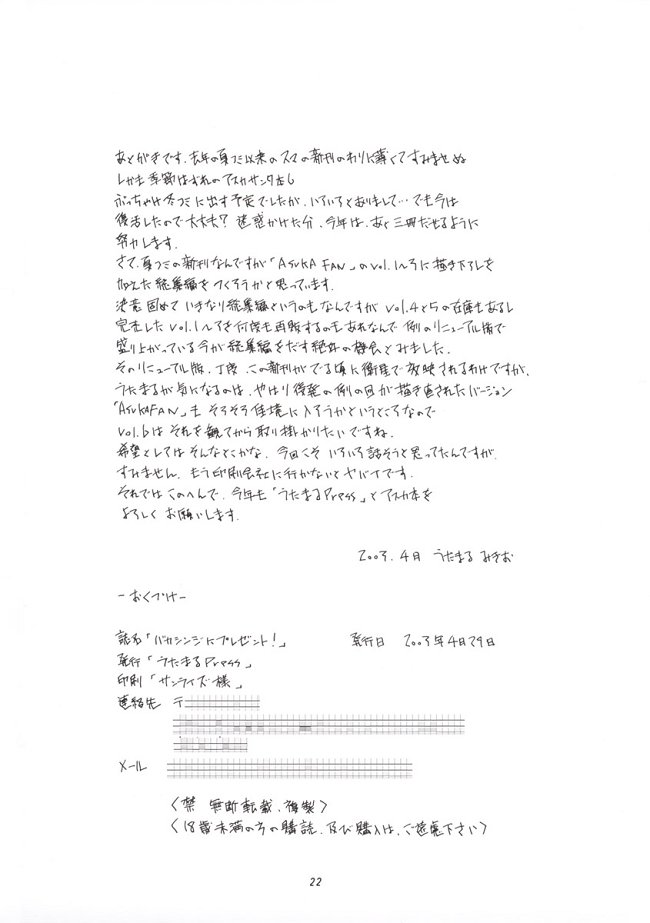 あとがきです。去年の夏コミ以来のスマの新刊のわりに薄くてすみませぬ
しかも季節はずれのアスカサンタだし
ぶっちゃけ冬コミに出す予定でしたが、いろいろとありまして…でも今は
復活したので大丈夫? 迷惑かけた分、今年は、あと三冊だせるように
努力します。
さて、夏コミの新刊なんですが「ASUKA FAN」のVol.1〜3に描き下ろしを
加えた総集編をつくろうかと思っています。
決意固めていきなり総集編というのもなんですがvol.4と5の在庫もあるし
完売したvol.1〜3を何度も再販するのもあれなんで例のリニューアル版で
盛り上がっている今が総集編をだす絶好の機会とみました。
そのリニューアル版、丁度、この新刊がでる頃に衛星で放映されるわけですが、
うたまるが気になるのは、やはり後発の例の回が描き直されたバージョン
「ASUKAFAN」も そろそろ佳境に入ろうかというところなので
vol.6は それを観てから取り掛かりたいですね。
希望としてはそんなとこかな、今回こそ いろいろ話そうと思ってたんですが、
すみません、もう印刷会社に行かないとヤバイです。
それでは このへんで、今年も「うたまるPress」とアスカ本を
よろしく お願いします。
2003.4月 うたまる みきお
－おくづけ－
誌名「バカシンジにプレゼント!」 発行日 2003年4月29日
発行「うたまるPress」
印刷「サンライズ様」
連絡先 〒
メール
〈禁 無断転載、複製〉
〈18歳未満の方の購読、及び購入は、ご遠慮下さい〉
22